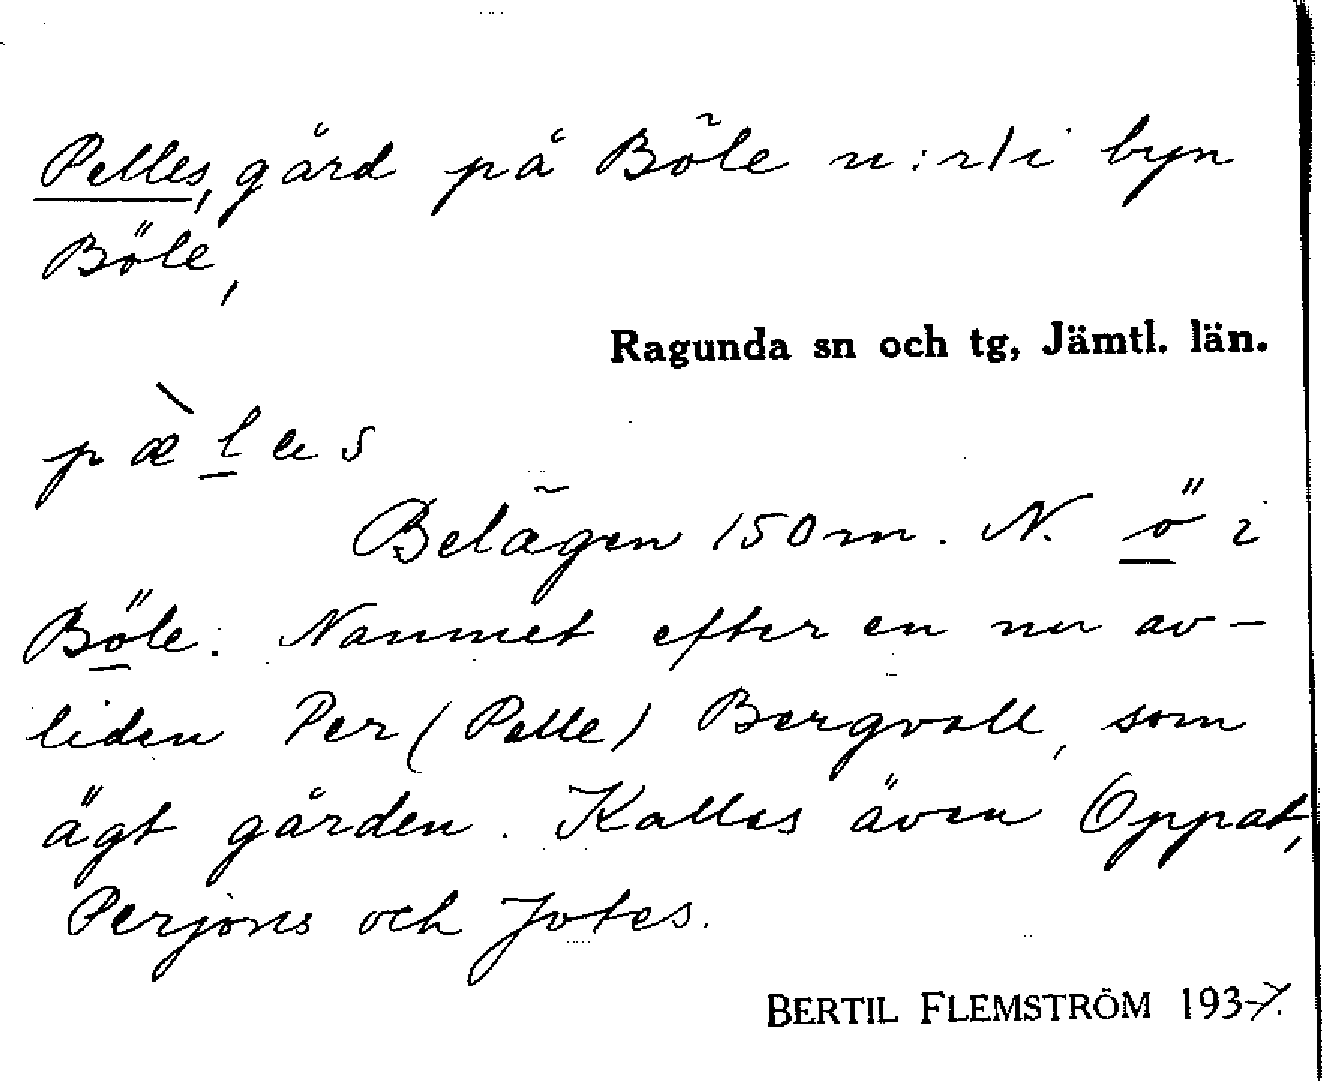 Pelles, gård på Böle n:r 1 i byn
Böle,
Ragunda sn och tg, Jämtl. län.
pæ̀les
Belägen 150 m. N. ö i
Böle. Namnet efter en nu av-
liden Per (Pelle) Bergvall, som
ägt gården. Kallas även Oppat,
Perjons och Jotes.
BERTIL FLEMSTRÖM 1937.